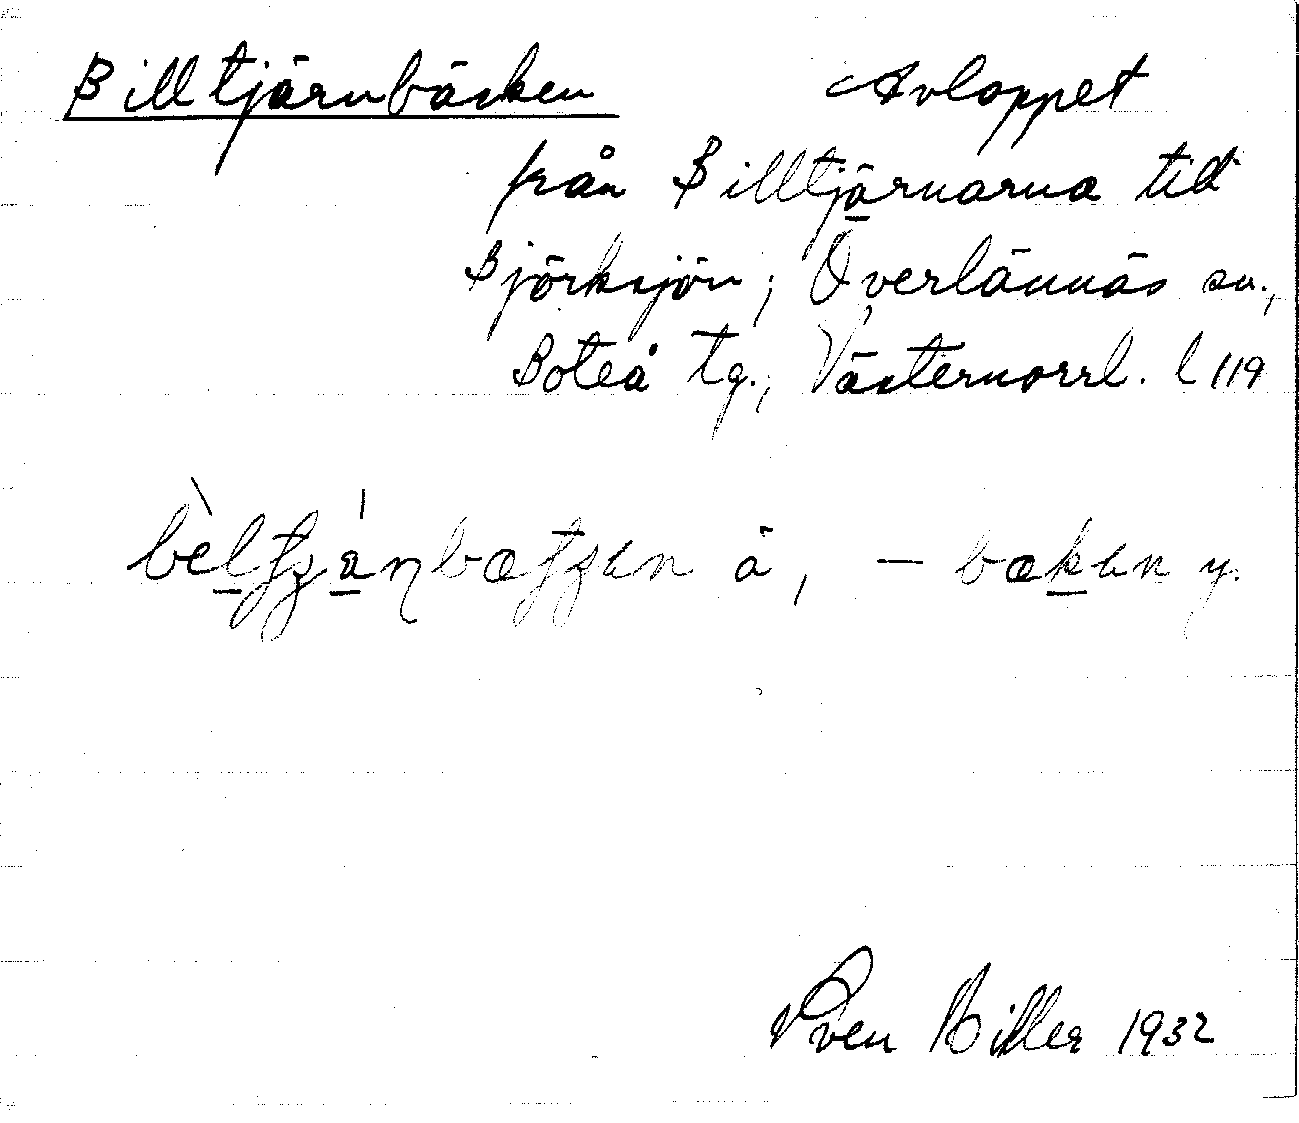 Billtjärnbäcken Avloppet
från Billtjärnarna till
Björksjön; Överlännäs sn.,
Boteå tg., Västernorrl. l 119
å, — y.
Sven Hiller 1932